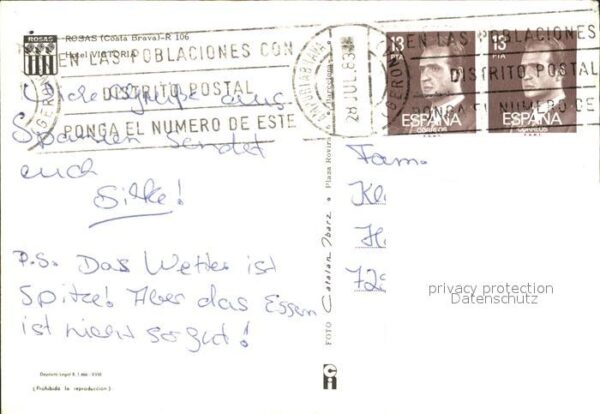 ROSAS
ROSAS (Costa Brava)-R 106
Hotel VICTORIA
EN LAS POBLACIONES CON
DISTRITO POSTAL
PONGA EL NUMERO DE ESTE
28 JUL 83
EN LAS POBLACIONES
DISTRITO POSTAL
PONGA EL NUMERO DE
13
PTA
ESPAÑA
CORREOS
13
PTA
ESPAÑA
CORREOS
Viele Grüße aus
Spanien sendet
euch
Silke!
P.S. Das Wetter ist
Spitze! Aber das Essen
ist nicht so gut!
Fam.
Kl
H
72
FOTO Catalan Ibarz • Plaza Rovira
privacy protection
Datenschutz
Depósito Legal B.
(Prohibida la reproducción)